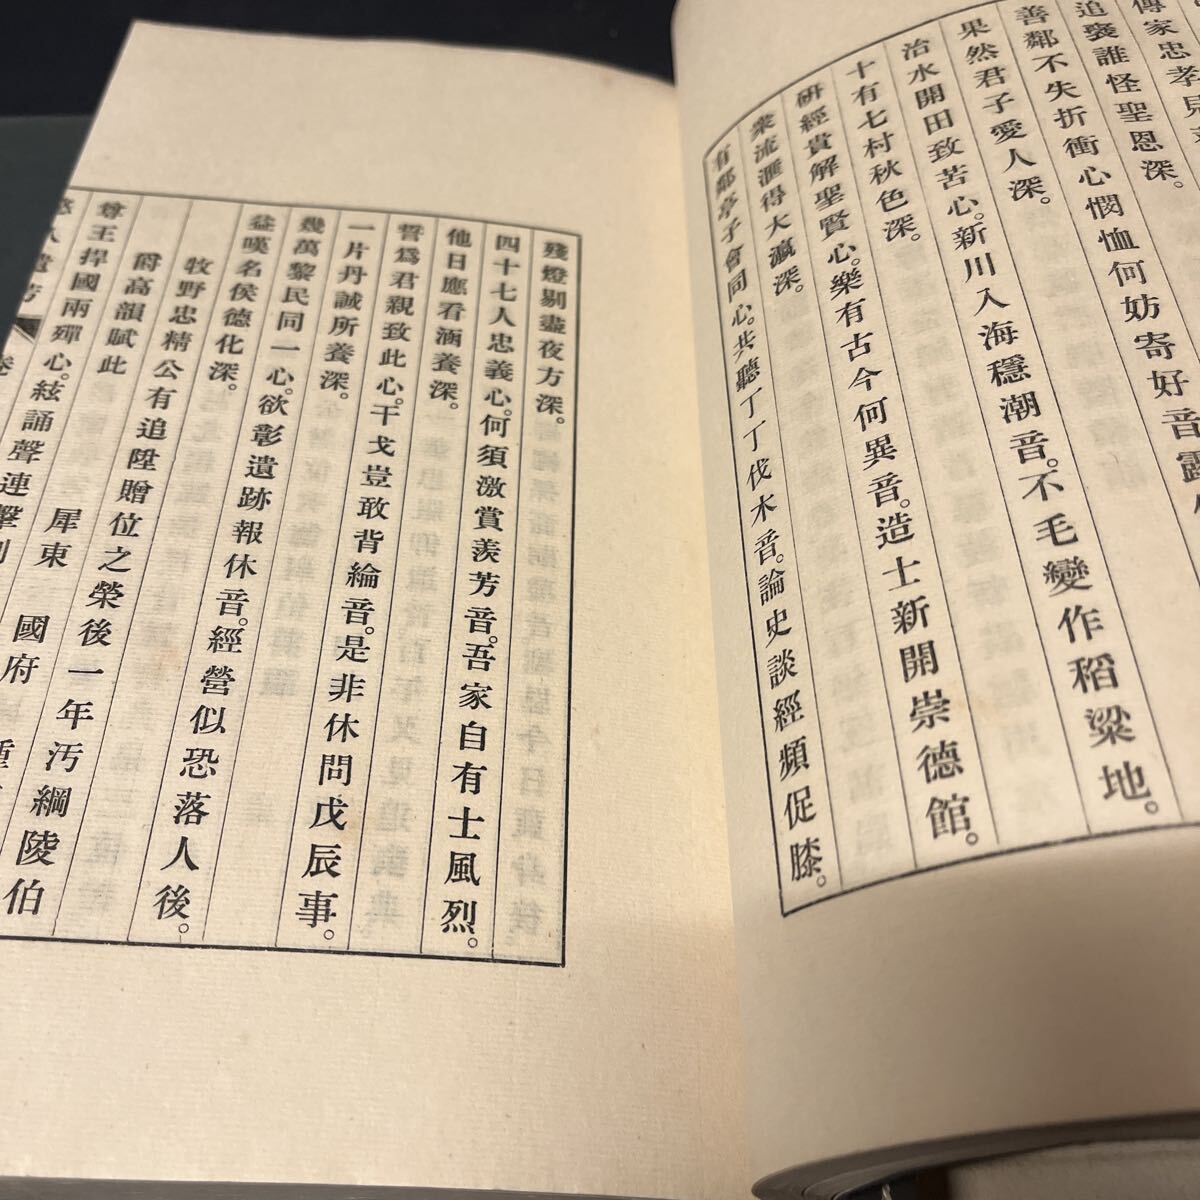 傳家忠孝
追褒誰怪聖恩深。
善鄰不失折衝心憫恤何妨寄好音露
果然君子愛人深。
治水開田致苦心。新川入海穩潮音。不毛變作稻粱地。
十有七村秋色深。
研經貴解聖賢心。樂有古今何異音。造士新開崇德館。
衆流滙得大瀛深。
有鄰亭子會同心。共聽丁丁伐木音。論史談經頻促膝。
殘燈剔盡夜方深。
四十七人忠義心。何須激賞羨芳音。吾家自有士風烈。
他日應看涵養深。
誓爲君親致此心。干戈豈敢背綸音。是非休問戊辰事。
一片丹誠所養深。
幾萬黎民同一心。欲彰遺跡報休音。經營似恐落人後。
益嘆名侯德化深。
牧野忠精公有追陞贈位之榮後一年汚綱陵伯
爵高韻賦此
犀東 國府
尊王捍國兩殫心。絃誦聲連擊
遺芳
卷